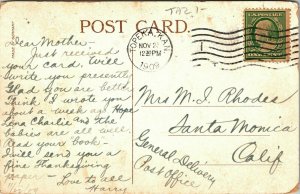 POST CARD
TOPEKA, KAN.
NOV 2
12 30 PM
1909
Dear Mother-
Just received
your card. Will
write you presently
Glad you are better
Think I wrote you
about a week ago Hope
Charlie and The
babies are all well
Read your book-
Will send you a
fine Thanksgiving
paper- Love to all
Harry
Mrs M. J. Rhodes
Santa Monica
General Delivery Calif
Post Office